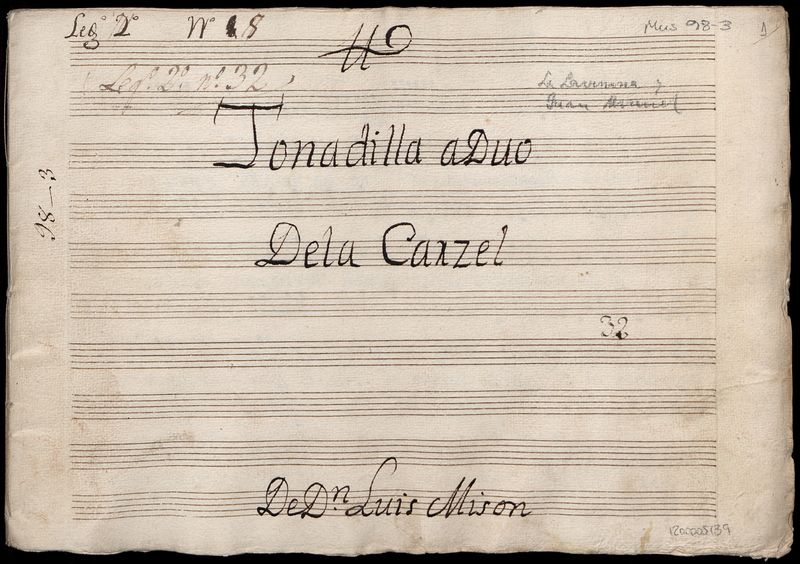 Legº 2º Nº 18
Mus 98-3
1
Legº. 2º. nº. 32
La Lavenana y
Juan Manuel
Tonadilla a Duo
98-3
Dela Carzel
32
De Dn Luis Mison
1200005139